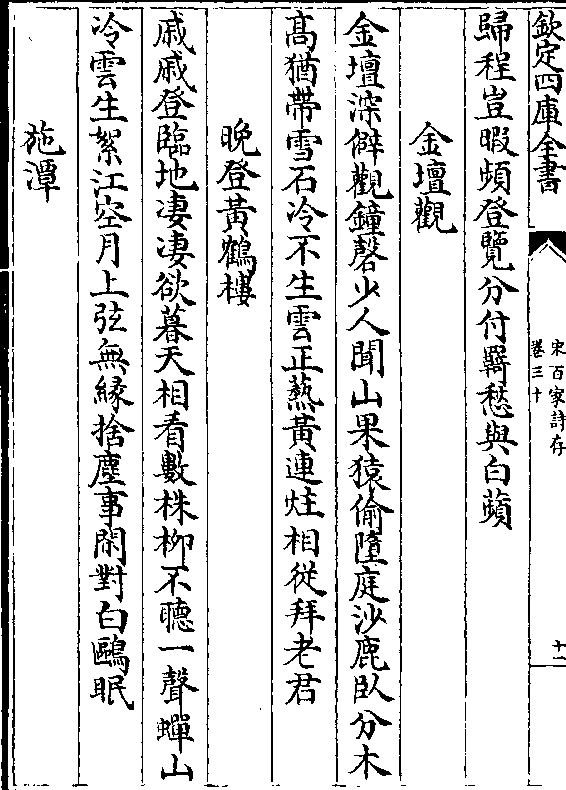 欽定四庫全書
宋百家詩存
卷三十
十一
歸程豈暇頻登覽分付羇愁與白蘋
金壇觀
金壇深僻觀鐘磬少人聞山果猿偷墮庭沙鹿臥分木
髙猶帶雪石冷不生雲正爇黃連炷相從拜老君
晚登黃鶴樓
戚戚登臨地凄凄欲暮天相看數株柳不聽一聲蟬山
冷雲生絮江空月上弦無緣捨塵事閑對白鷗眠
施潭